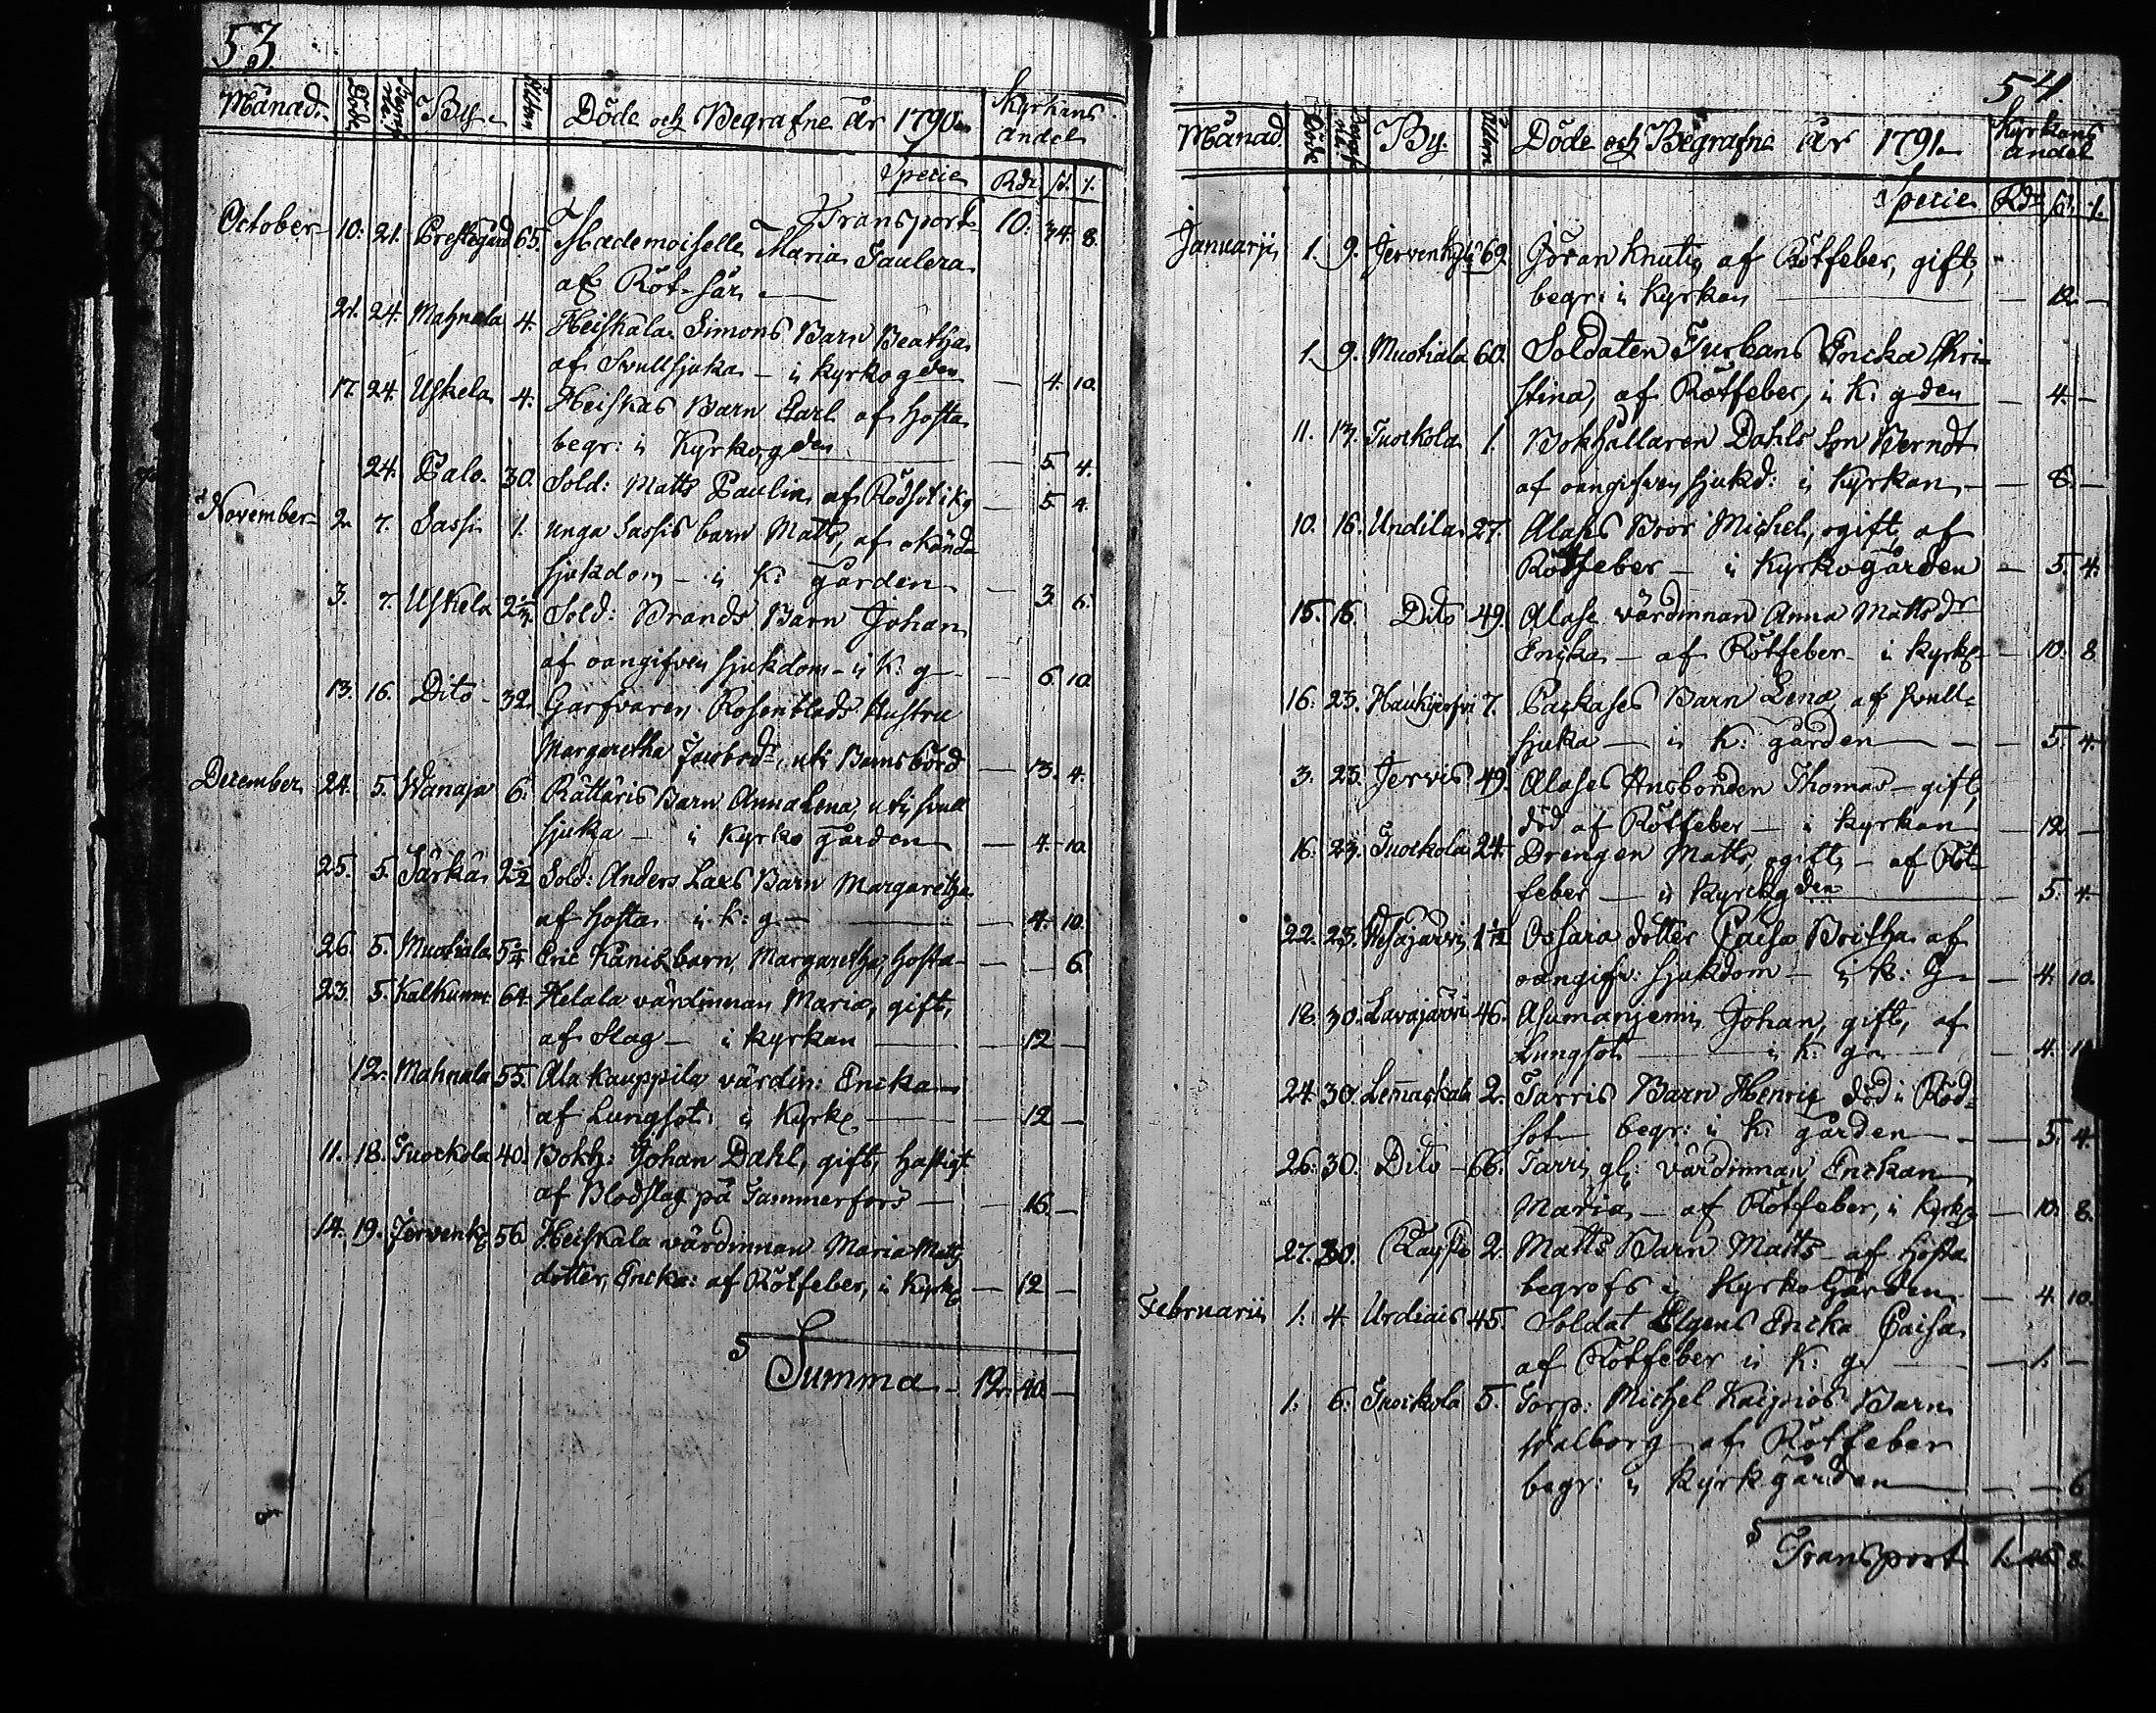 53
Månad. Döde Begrafne By. Åldern Döde och Begrafne år 1790. Kyrkans andel
Specie Rdr ß. r.
Transport 10. 34. 8.
October 10. 21. Prestegård 65. Mademoiselle Maria Paulera
af Röt-sår
21. 24. Mahnala 4. Heiskala Simons Barn Beatha
af Svullsjuka - i kyrkogden - 4. 10.
17. 24. Uskela 4. Heiskas Barn Carl af hosta
begr: i Kyrkogden - 5. 4.
24. Palo. 30. Sold: Matts Paulin af Rödsot i kg - 5. 4.
November 2. 7. Sassi 1. unga Sassis barn Matts, af okänd
sjukdom - i K: gården - 3. 6.
3. 7. Uskela Sold: Brands Barn Johan
af oangifven sjukdom - i K: g - 6. 10.
13. 16. Dito - 32. Garfvaren Rosenblads Hustru
Margaretha Jacobsdr, uti Barnsbörd - 13. 4.
December 24. 5. Wanaja 6. Rättäris Barn Anna Lena, uti svull
sjuka - i Kyrkogården - 4. 10.
25. 5. Särkä 2 1/2 Sold: Anders Lars Barn Margaretha
af hosta i k: g. - 4. 10.
26. 5. Muotiala 5/4 Eric Kanis barn, Margaretha, hosta - - 6.
23. 5. Kalkunm: 64. Helala värdinnan Maria, gift,
af Slag - i kyrkan - 12 -
12. Mahnala 55. Ala Kauppila värdin: Enckan
af Lungsot. i Kyrk: - 12 -
11. 18. Tuockola 40. Bokh: Johan Dahl, gift, hastigt
af Blodslag på Tammerfors - 16. -
14. 19. Jervenk: 56. Heiskala värdinnan Maria Matts
dotter, Encka: af Rötfeber, i Kyrk: - 12 -
Summa - 12. 40. -
54.
Månad. Döde Begrafne By. Åldern Döde och Begrafne år 1791. Kyrkans andel
Specie Rdr ß. r.
Januarii 1. 9. Jervenkylä 69. Göran Knuti, af Rötfeber, gift,
begr: i Kyrkan - 12. -
1. 9. Muotiala 60. Soldaten Turkans Encka Chri-
stina, af Rötfeber, i K: gden - 4. -
11. 13. Tuockola 1. Bokhållaren Dahls Son Berndt
af oangifven sjukd: i Kyrkan - 8. -
10. 16. Undila 27. Alases Bror Michel, ogift, af
Rötfeber - i Kyrkogården - 5. 4.
15. 16. Dito 49. Alase värdinnan Anna Mattsdr
Encka - af Rötfeber - i kyrk: - 10. 8.
16. 23. Haukijerfvi 7. Packases Barn Lena af svull-
sjuka - i K: gården - 5. 4.
3. 23. Jervis 49. Alases Husbonden Thomas - gift,
död af Rötfeber - i kyrkan - 12 -
16. 23. Tuockola 24. Drengen Matts, ogift, - af Röt-
feber - i Kyrckogden - 5. 4.
22. 23. Wesajärvi Ossara dotter Caisa Britha af
oangifv: sjukdom - i k: G - 4. 10.
18. 30. Lavajärvi 46. Asumaniemi Johan, gift, af
Lungsot - i K: g. - 4.
24. 30. Lemackala 2. Tarris Barn Henric död i Röd-
sot begr: i K: gården - 5. 4.
26. 30. Dito - 66. Tarri gl: värdinnan Enckan
Maria, - af Rötfeber, i Kyrk: - 10. 8.
27. 30. 2. Matts Barn Matts - af hosta
begrofs i KyrkoGården - 4. 10.
Februarii 1. 4. Urdiais 45. Soldat Elgens Encka Caisa
af Rötfeber i K: g. - 1. -
1. 6. Tuockola 5. Torp: Michel Kaipios Barn
Walborg af Rötfeber
begr: i Kyrkgården - - 6
Transport 1. 8.